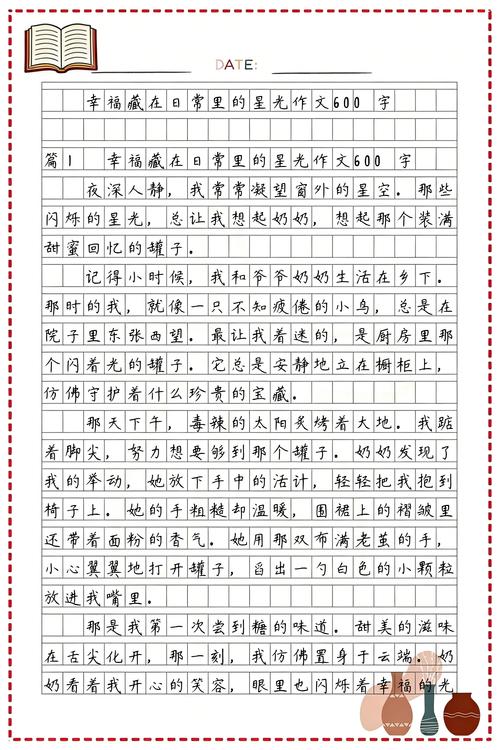 DATE:
幸福藏在日常里的星光作文600 字
篇1 幸福藏在日常里的星光作文600 字
夜深人静，我常常凝望窗外的星空．那些
闪烁的星光，总让我想起奶奶，想起那个装满
甜蜜回忆的罐子．
记得小时候，我和爷爷奶奶生活在乡下．
那时的我，就像一只不知疲倦的小鸟，总是在
院子里东张西望．最让我着迷的，是厨房里那
个闪着光的罐子．它总是安静地立在橱柜上，
仿佛守护着什么珍贵的宝藏．
那天下午，毒辣的太阳炙烤着大地．我踮
着脚尖，努力想要够到那个罐子．奶奶发现了
我的举动，她放下手中的活计，轻轻把我抱到
椅子上．她的手粗糙却温暖，围裙上的褶皱里
还带着面粉的香气．她用那双布满老茧的手，
小心翼翼地打开罐子，舀出一勺白色的小颗粒
放进我嘴里．
那是我第一次尝到糖的味道．甜美的滋味
在舌尖化开，那一刻，我仿佛置身于云端．奶
奶看着我开心的笑容，眼里也闪烁着幸福的光